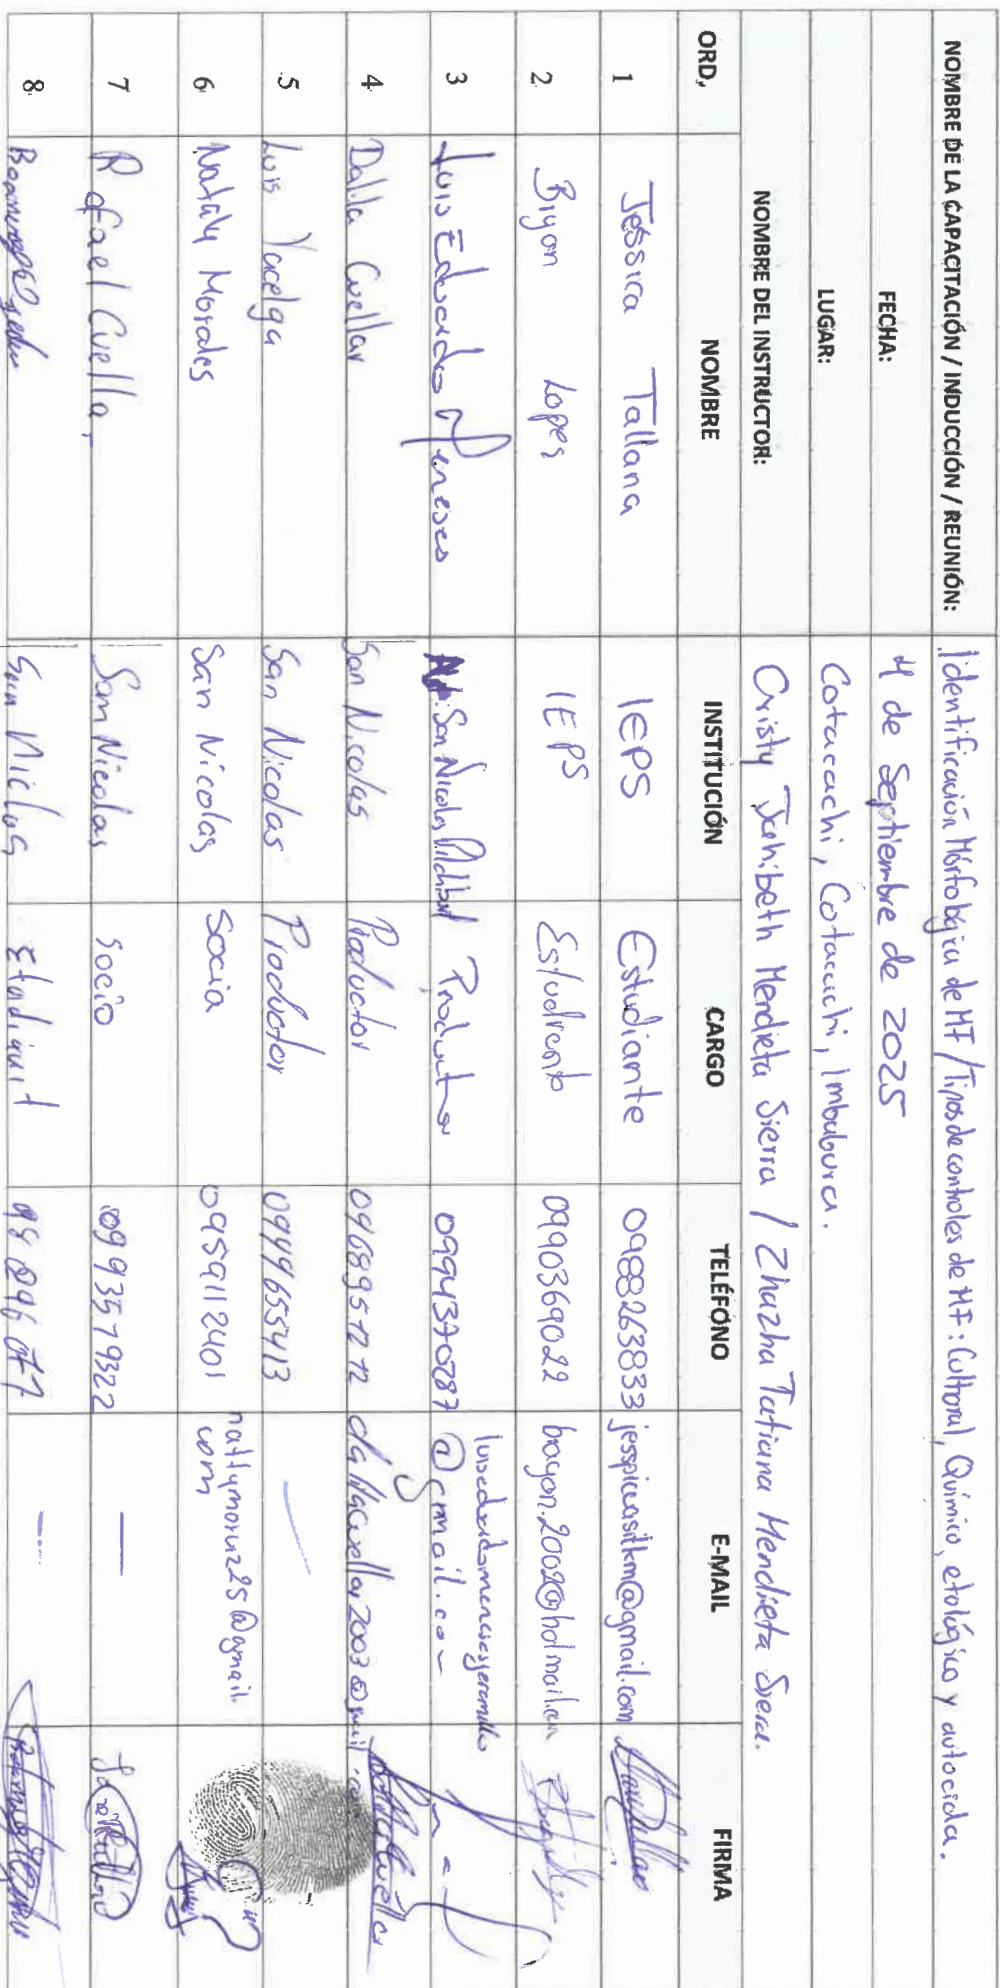 NOMBRE DE LA CAPACITACIÓN / INDUCCIÓN / REUNIÓN: Identificación Morfológica de MF / Tipos de controles de MF: Cultural, Químico, etológico y autocida.
FECHA: 4 de Septiembre de 2025
LUGAR: Cotacachi, Cotacachi, Imbabura.
NOMBRE DEL INSTRUCTOR: Cristy Jahibeth Mendieta Sierra / Zhazha Tatiana Mendieta Sierra.
ORD, NOMBRE INSTITUCIÓN CARGO TELÉFONO E-MAIL FIRMA
1 Jessica Tallana IEPS Estudiante 0988263833 jesspicasitkm@gmail.com
2 Bryan Lopes IEPS Estudiante 0990369022
3 Luis Eduardo Meneses San Nicolas Productor 0994370287 @gmail.com
4 Dalila Cuellar San Nicolas Productor 0968957212
5 Luis Yacelga San Nicolas Productor 0949655413 —
6 Nataly Morales San Nicolas Socia 0959112401 nattymoru25@gmail.com
7 Rafael Cuellar San Nicolas Socio 0993579322 —
8 San Niclas —